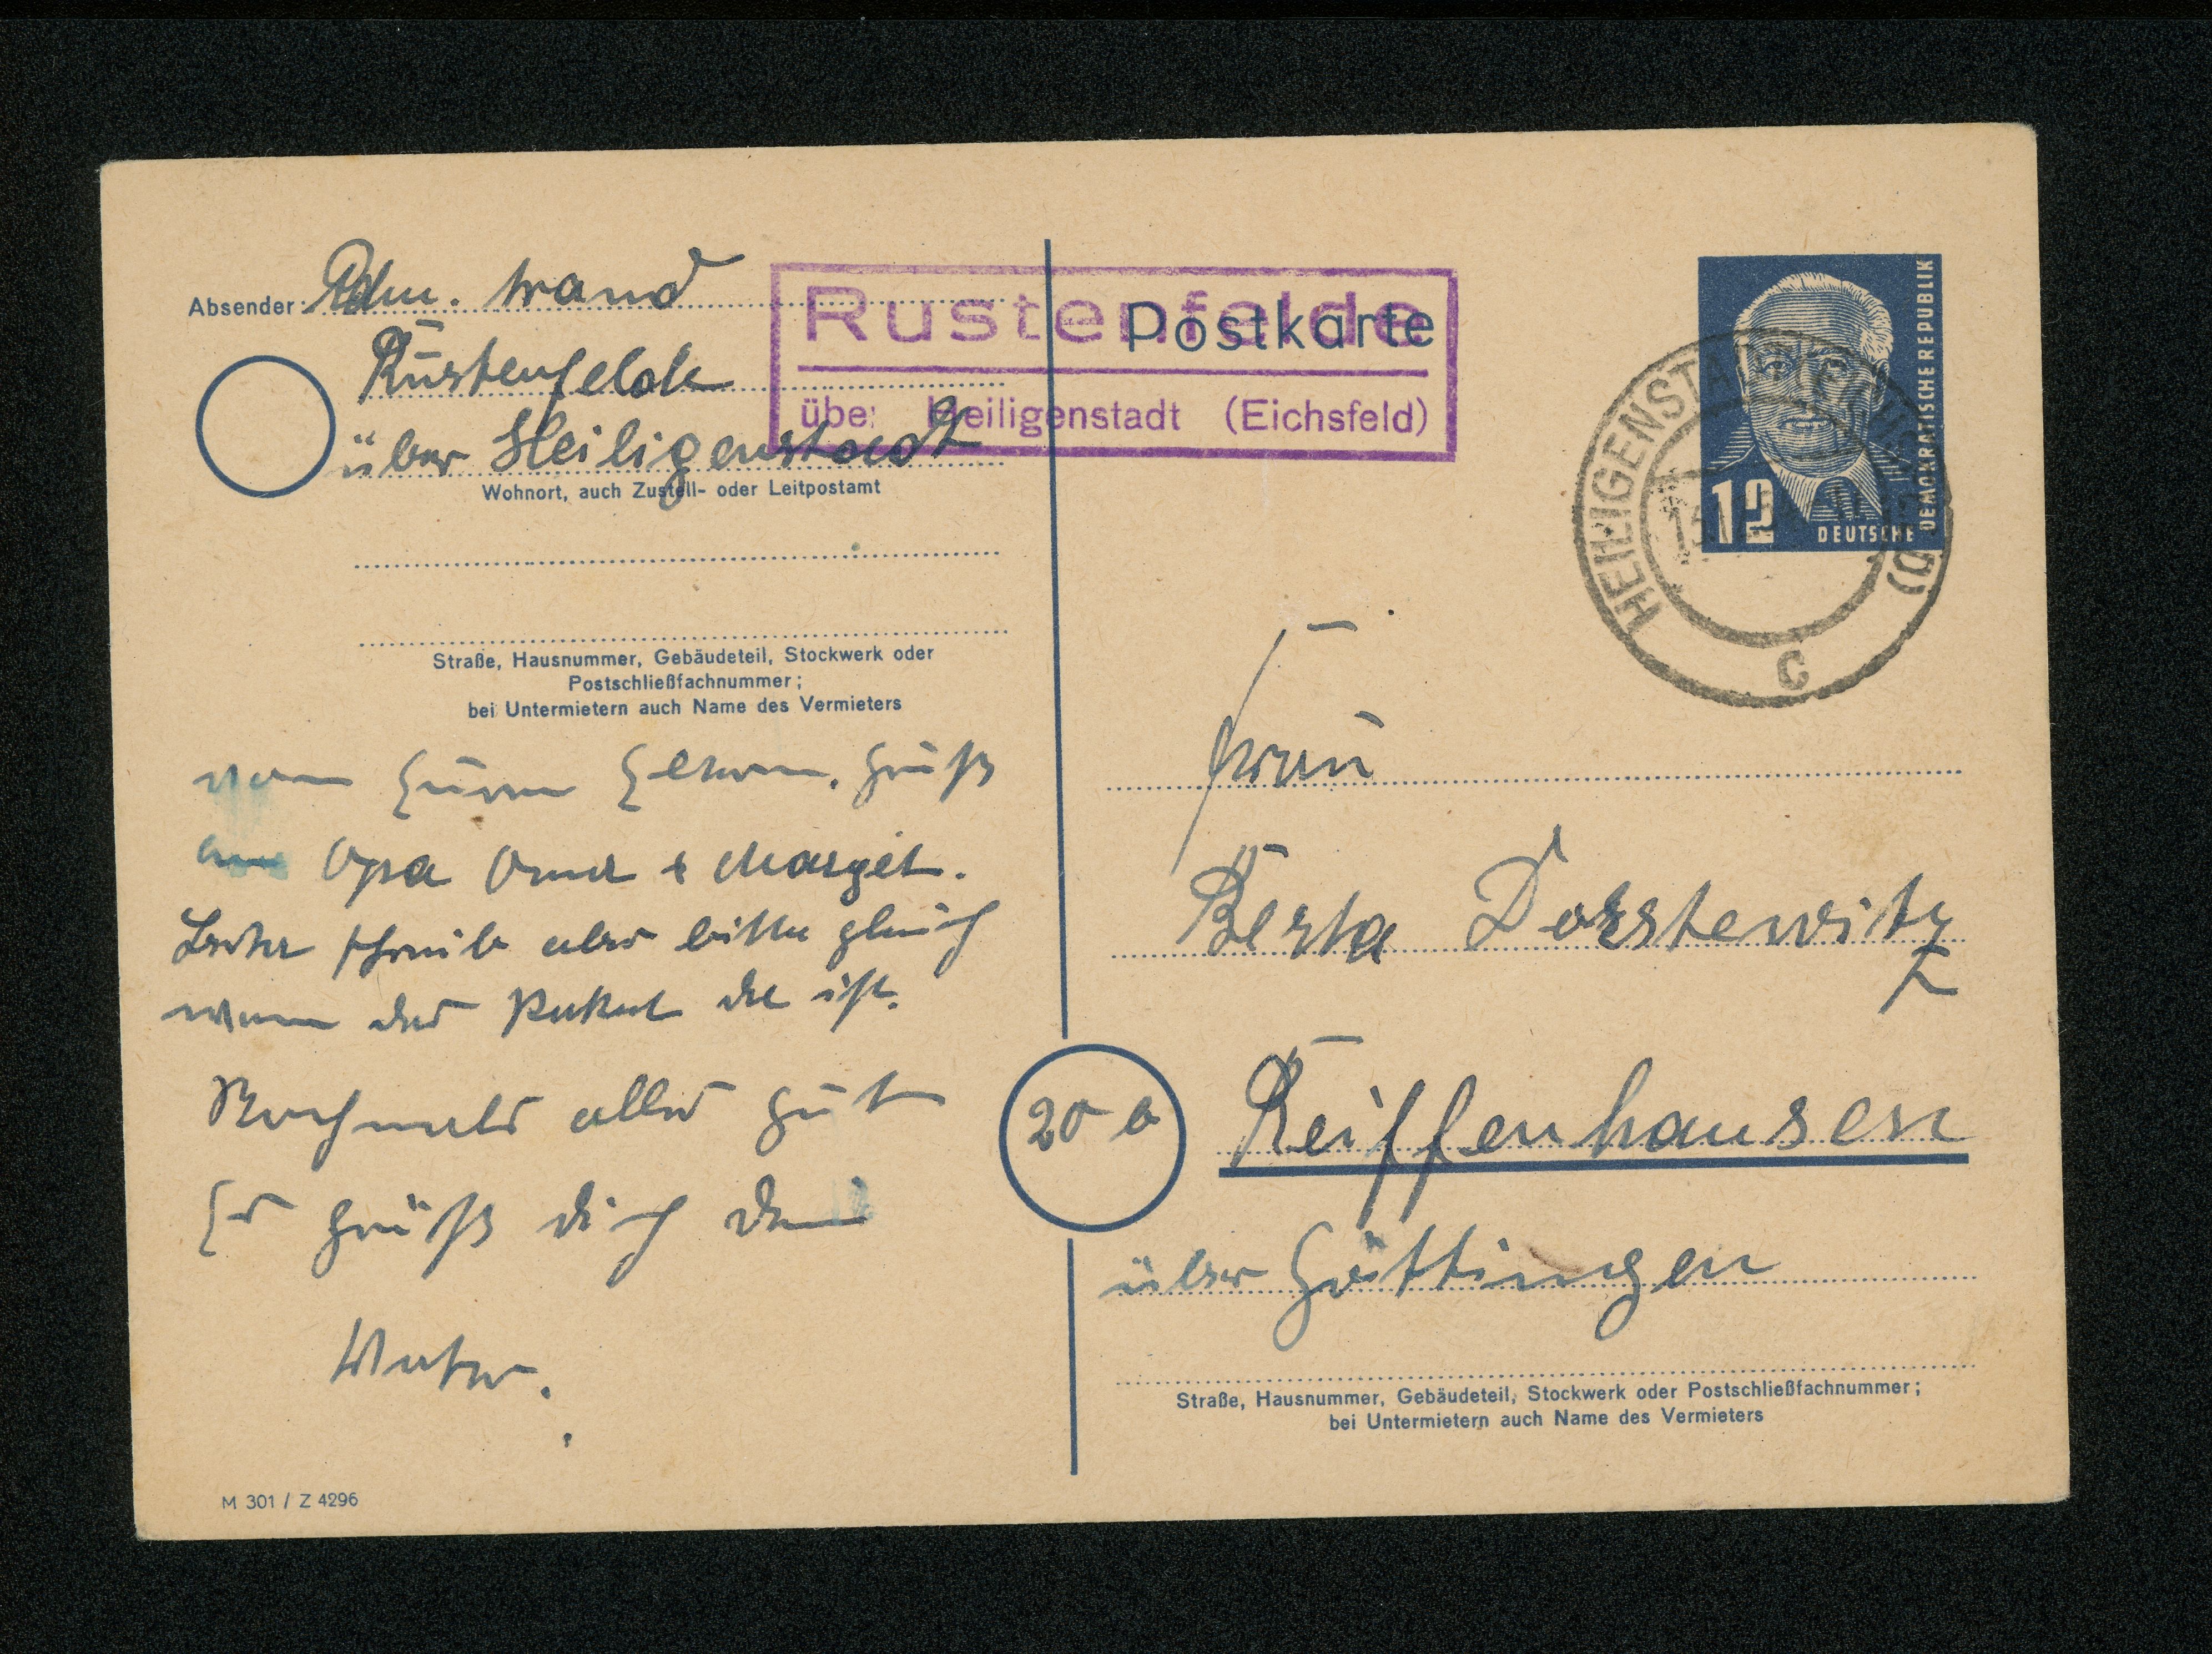 Absender:
Rustenfelde
über Heiligenstadt
Wohnort, auch Zustell- oder Leitpostamt
Straße, Hausnummer, Gebäudeteil, Stockwerk oder
Postschließfachnummer;
bei Untermietern auch Name des Vermieters
Opa Oma & Margit.
schreib aber bitte gleich
wenn das Paket da ist.
Nochmals alles gute
Es grüßt dich dein
Vater.
M 301 / Z 4296
Rustenfelde
über Heiligenstadt (Eichsfeld)
Postkarte
12
DEUTSCHE
DEMOKRATISCHE REPUBLIK
HEILIGENSTADT
c
Frau
Berta Dorstewitz
20
Reiffenhausen
über Göttingen
Straße, Hausnummer, Gebäudeteil, Stockwerk oder Postschließfachnummer;
bei Untermietern auch Name des Vermieters